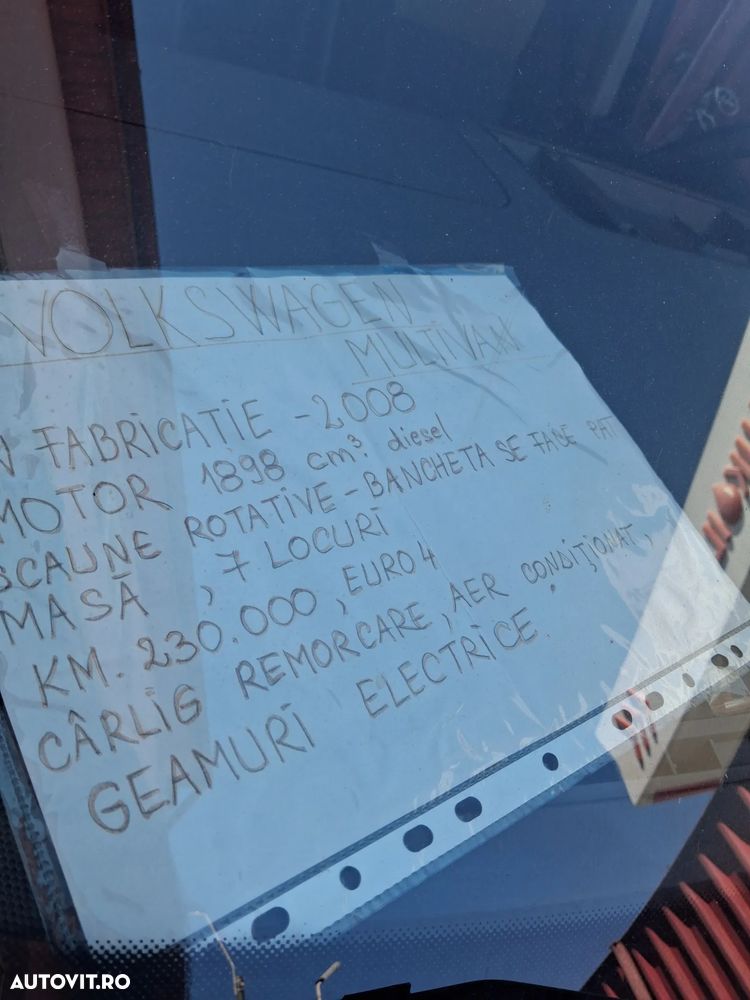 VOLKSWAGEN
MULTIVAN
N FABRICAȚIE - 2008
MOTOR 1898 cm³. diesel
SCAUNE ROTATIVE - BANCHETA SE FACE PAT
MASĂ , 7 LOCURI
KM. 230.000 , EURO 4
CÂRLIG REMORCARE, AER CONDIȚIONAT,
GEAMURI ELECTRICE.
AUTOVIT.RO